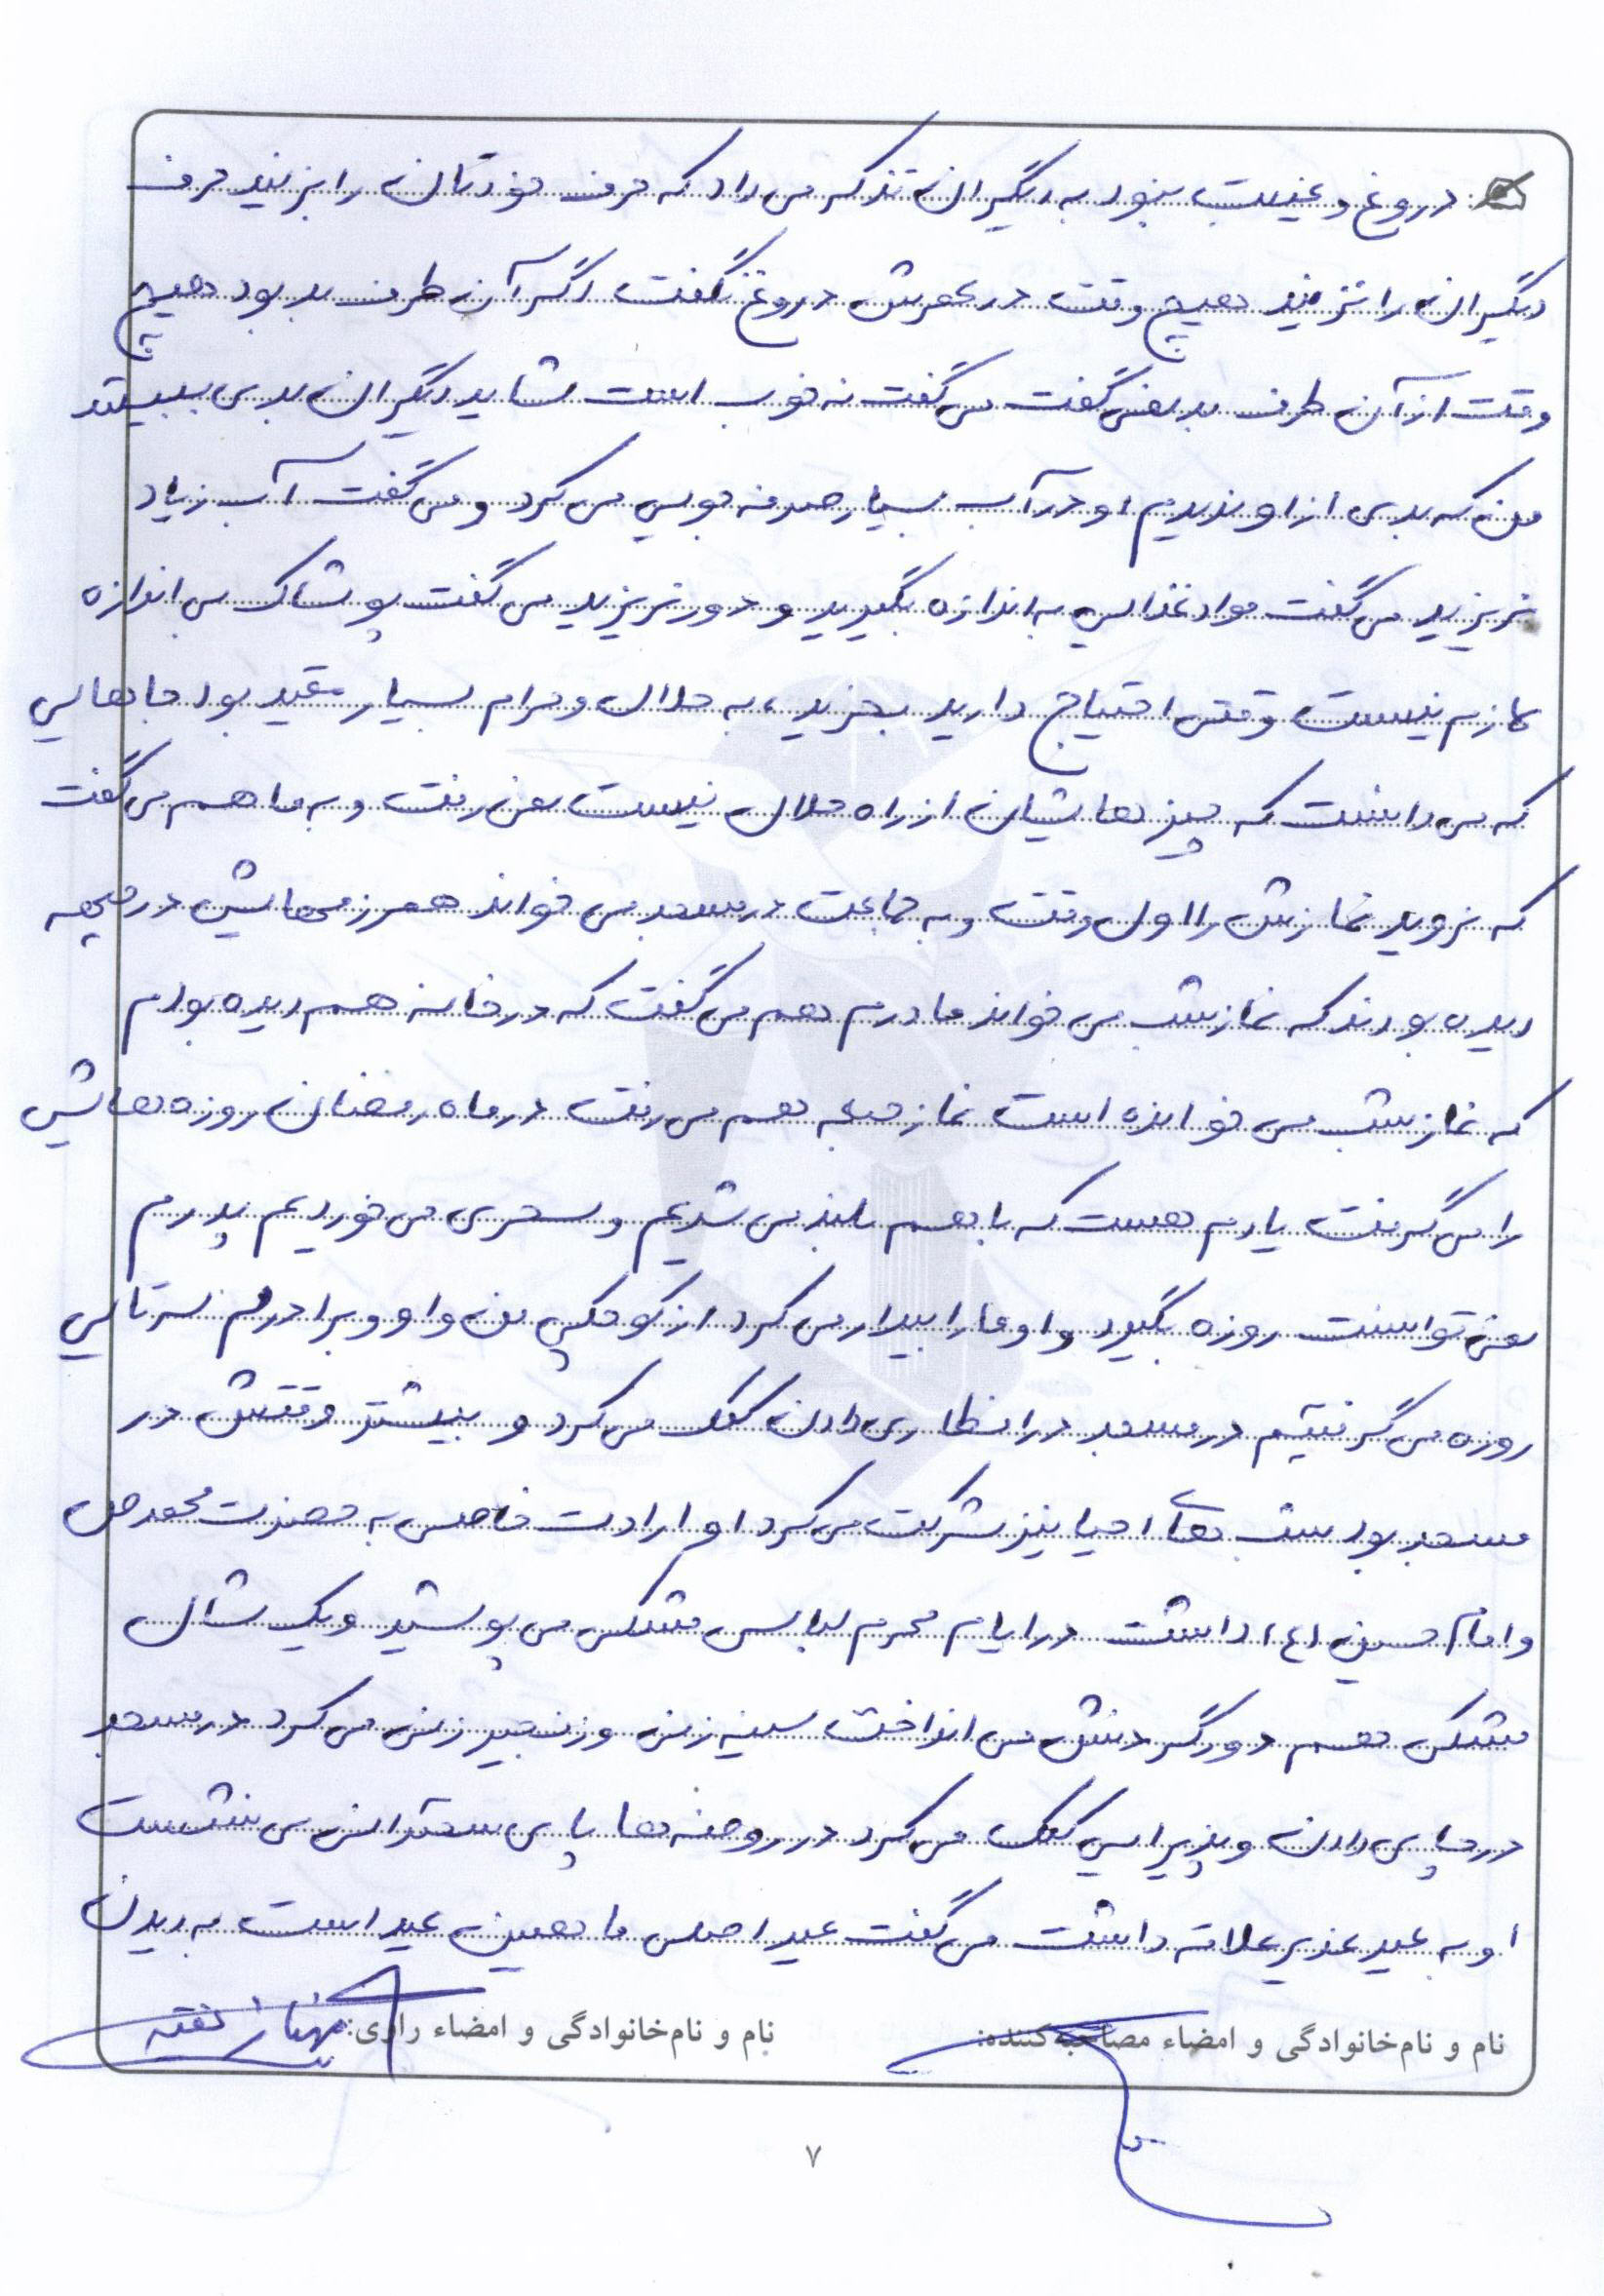 دروغ و غیبت نبود به دیگران تذکر می داد که حرف خودتان را بزنید حرف
دیگران را نزنید هیچ وقت در عمرش دروغ نگفت اگر آن طرف بد بود هیچ
وقت از آن طرف بد نمی گفت می گفت نه خوب است شاید دیگران بدی ببینند
من که بدی از او ندیدم او در آب بسیار صرفه جویی می کرد و می گفت آب زیاد
نریزید می گفت مواد غذایی به اندازه بگیرید و دور نریزید می گفت پوشاک بی اندازه
لازم نیست وقتی احتیاج دارید بخرید، به حلال و حرام بسیار مقید بود جاهایی
که می دانست که چیزهایشان از راه حلال نیست نمی رفت و به ما هم می گفت
که نروید نمازش را اول وقت و به جماعت در مسجد می خواند همرزمهایش در جبهه
دیده بودند که نماز شب می خواند مادرم هم می گفت که در خانه هم دیده بودم
که نماز شب می خوانده است نماز جمعه هم می رفت در ماه رمضان روزه هایش
را می گرفت یادم هست که با هم بلند می شدیم و سحری می خوردیم پدرم
نمی توانست روزه بگیرد و او ما را بیدار می کرد از کوچکی من و او و برادرم سه تایی
روزه می گرفتیم در مسجد در افطاری دادن کمک می کرد و بیشتر وقتش در
مسجد بود شب های احیا نیز شرکت می کرد او ارادت خاصی به حضرت محمد ص
و امام حسین (ع) داشت در ایام محرم لباس مشکی می پوشید و یک شال
مشکی هم دور گردنش می انداخت سینه زنی و زنجیر زنی می کرد در مسجد
در چای دادن و پذیرایی کمک می کرد در روضه ها پای سخنرانی می نشست
او به عید غدیر علاقه داشت می گفت عید اصلی ما همین عید است به دیدن
نام و نام‌خانوادگی و امضاء مصاحبه‌کننده: نام و نام‌خانوادگی و امضاء راوی:
۷